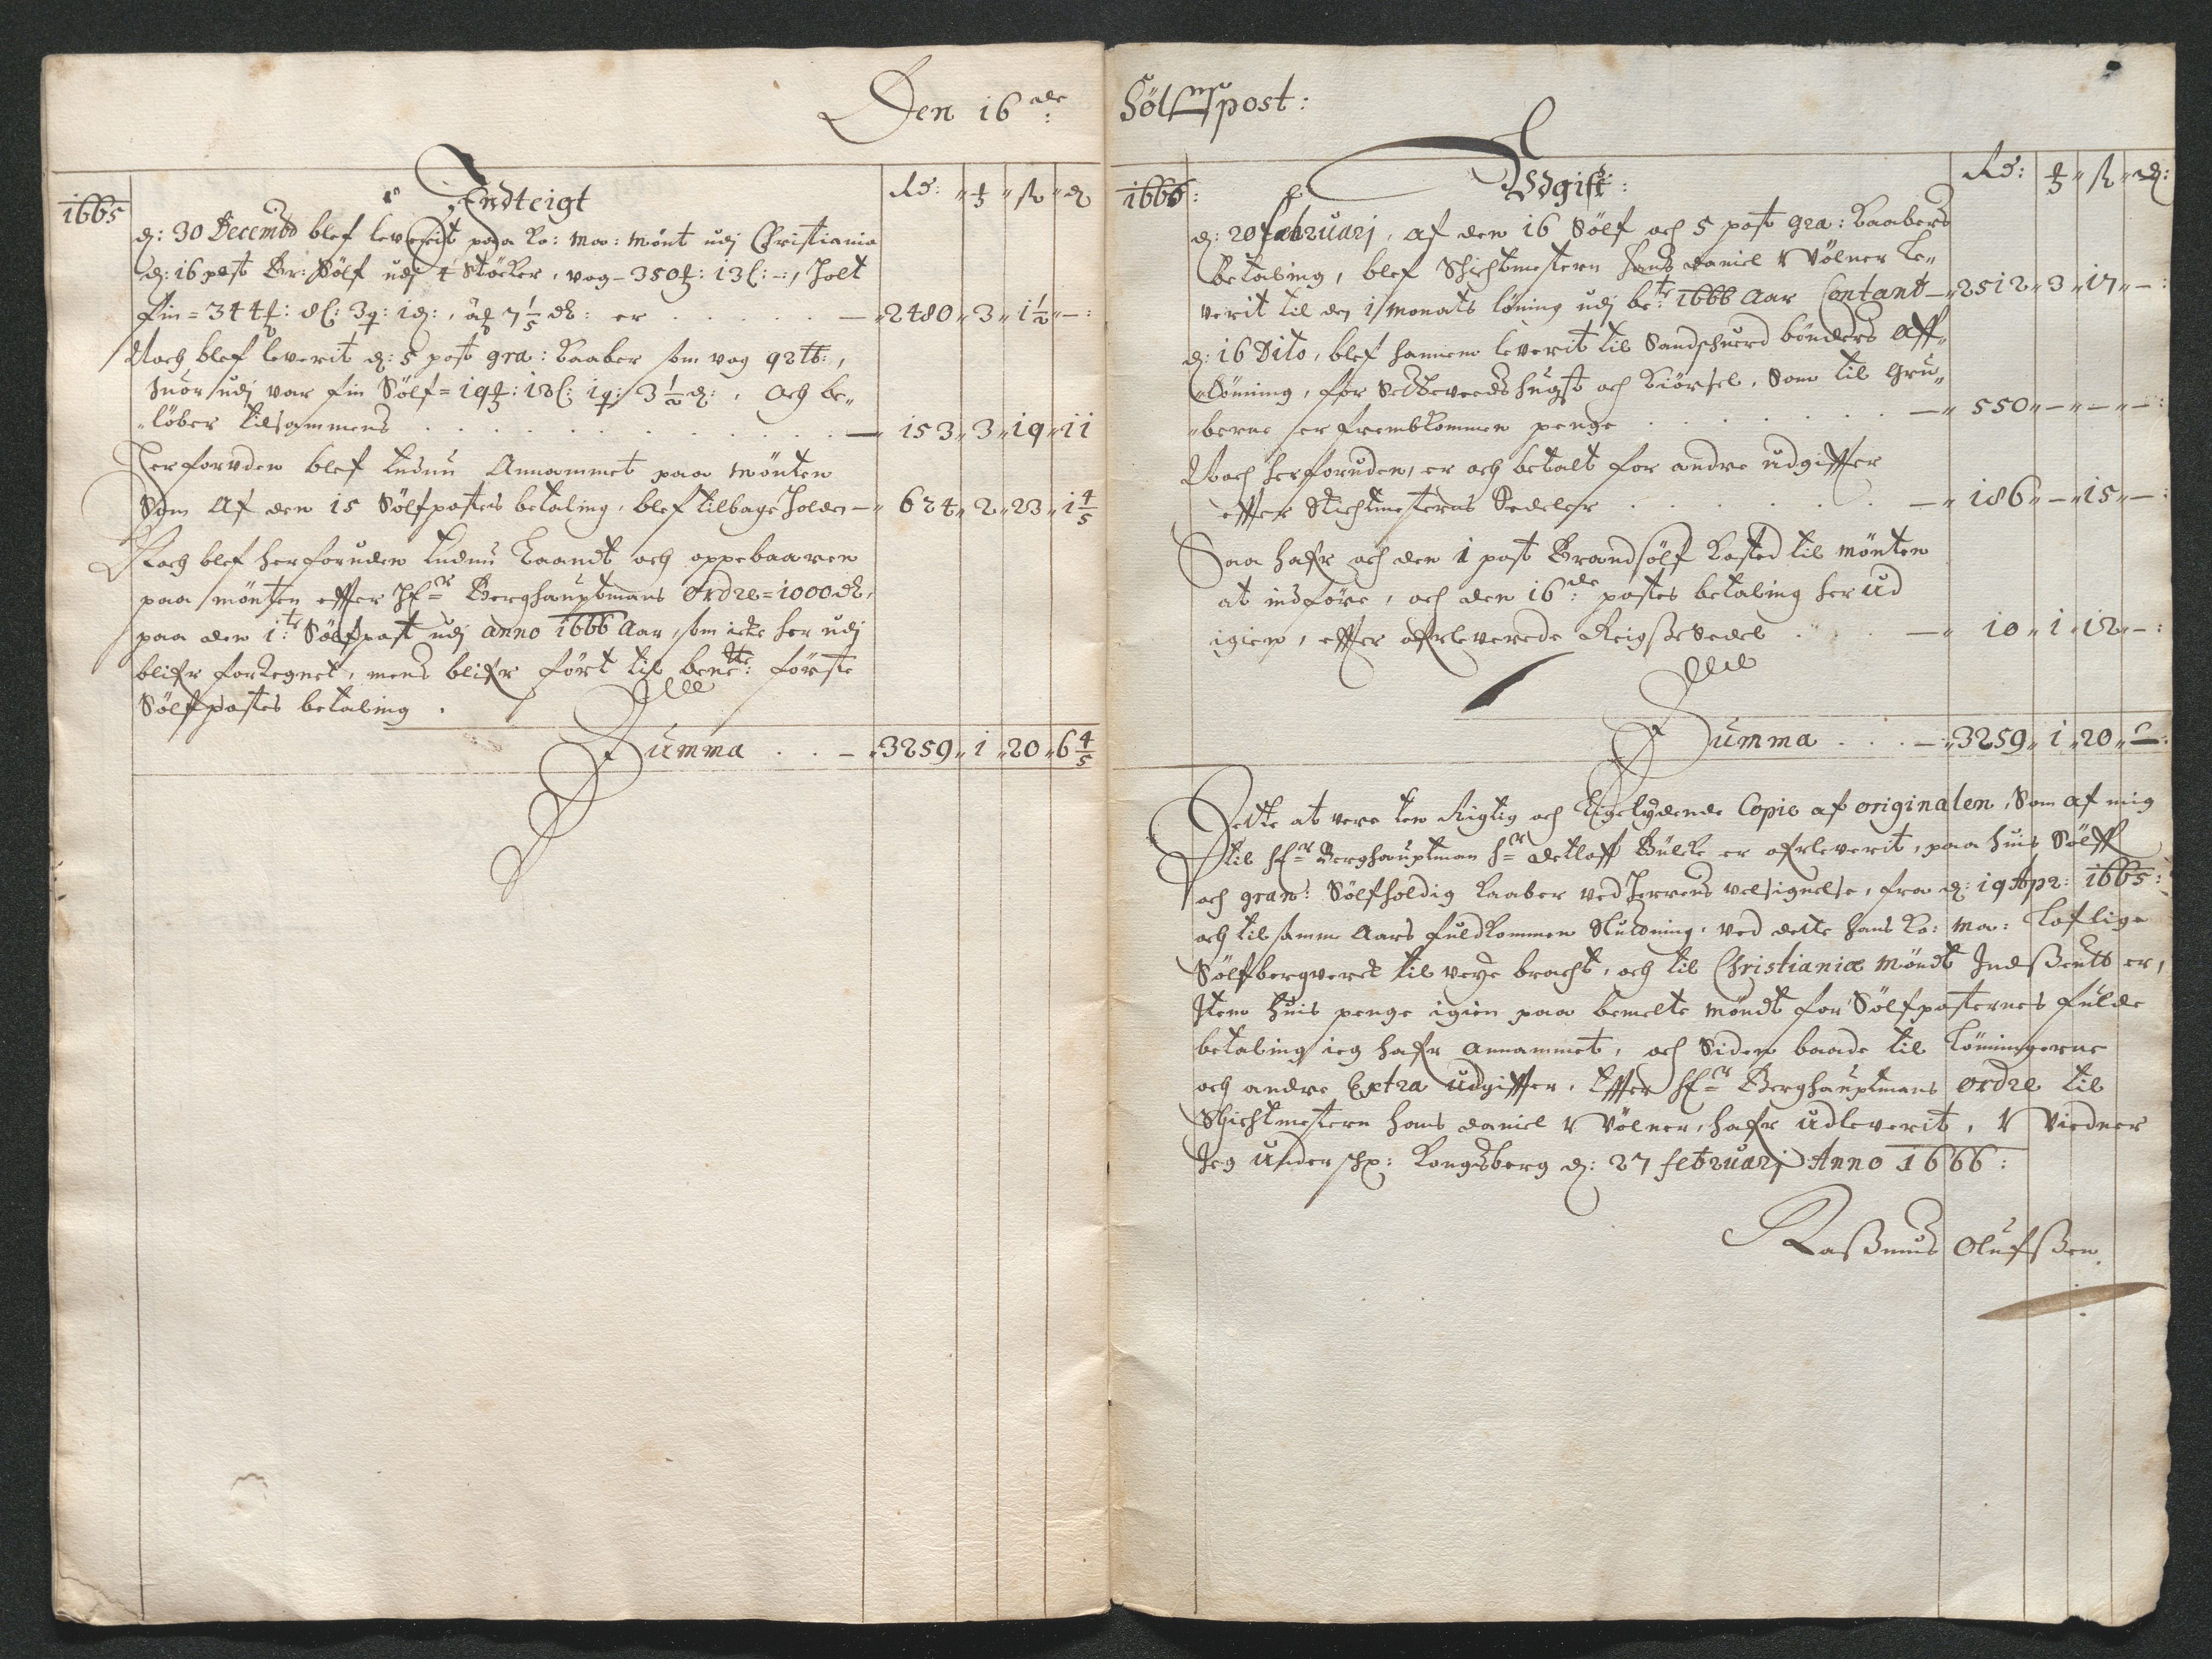 Den 16 de:
Indteigt
Rd: " ℔ " ß " ₰
1665
d: 30 Decembr blef leverit paa Ko: Ma: Mönt udj Christiania
d: 16 post Br: Sölf udj 4 Stöcker, vog – 350 ℔: 13 l: –:, holt
fin = 344 ℔: 8 l: 3 q: 1 d:, à 7 1/5 d: er . . . . . — " 2480 " 3 " 1 1/2 " — :
Noch blef leverit d: 5 post gra: Kaaber som vog 92 ℔:,
huor udj var fin Sölf = 19 ℔: 18 l: 1 q: 3 1/2 d:, och be"
"löber tilsammens . . . . . . — " 153 " 3 " 19 " 11
Herforuden blef endnu Annammet paa Mönten
Som Af den 15 Sölfpostes betaling, blef tilbage holden — " 624 " 2 " 23 " 1 4/5
Noch blef herforuden endnu Laandt och oppebaaren
paa Mönten effter Hr Berghauptmans Ordre = 1000 d,
paa den 1te Sölfpost udj anno 1666 Aar, som icke her udj
blifr fortegnet, mens blifr fört til bente: förste
Sölfpostes betaling .
Summa . . — " 3259 " 1 " 20 " 6 4/5
Sölfpost:
Udgift:
Rd: ℔ " ß " ₰:
1666:
d: 20 februarj, af den 16 Sölf och 5 post gra: Kaabers
betaling, blef Schichtmestern Hans Daniel Wölner le"
verit til den 1 Monats löning udj bete 1666 Aar Contant — " 2512 " 3 " 17 " — :
d: 16 Dito, blef hannem leverit til Sandschuerd bönders Aff"
"lönning, for Setteveeds hugst och kiörsel, Som til Gru"
"berne er frembkommen penge . . . . . — " 550 " — " — " — :
Noch herforuden, er och betalt for andre udgiffter
effter Stichtmesterns Sedeler . . . . . — " 186 " — " 15 " — :
Saa hafr och den 1 post Brandsölf kosted til Mönten
at indföre, och den 16de: postes betaling her ud
igien, effter ofrleverede Reigse Sedel . . — " 10 " 1 " 12 " — :
Summa . . . — " 3259 " 1 " 20 " — :
Dette at vere den Rigtig och Ligelydende Copie af originalen, Som af mig
til Hr Berghauptman Hr Detloff Bülche er ofrleverit, paa huis Sölff
och gran: Sölfholdig Kaaber ved Herrens velsignelse, fra d: 19 Apr: 1665:
och til samme Aars fuldkommen Slutning, ved dette Hans Ko: Ma: Loflige
Sölfbergverck til veye bracht, och til Christianiæ Möndt Indsendt er,
Item huis penge igien paa bemelte Möndt for Sölfposternes fulde
betaling ieg hafr annammet, och Siden baade til Lönningerne
och andre Extra Udgiffter, Effter Hr Berghauptmans Ordre til
Schichtmestern Hans Daniel Wölner, hafr udleverit, Widner
Jeg Underschr: Kongsberg d: 27 februarj Anno 1666:
Rasmus Olufssen